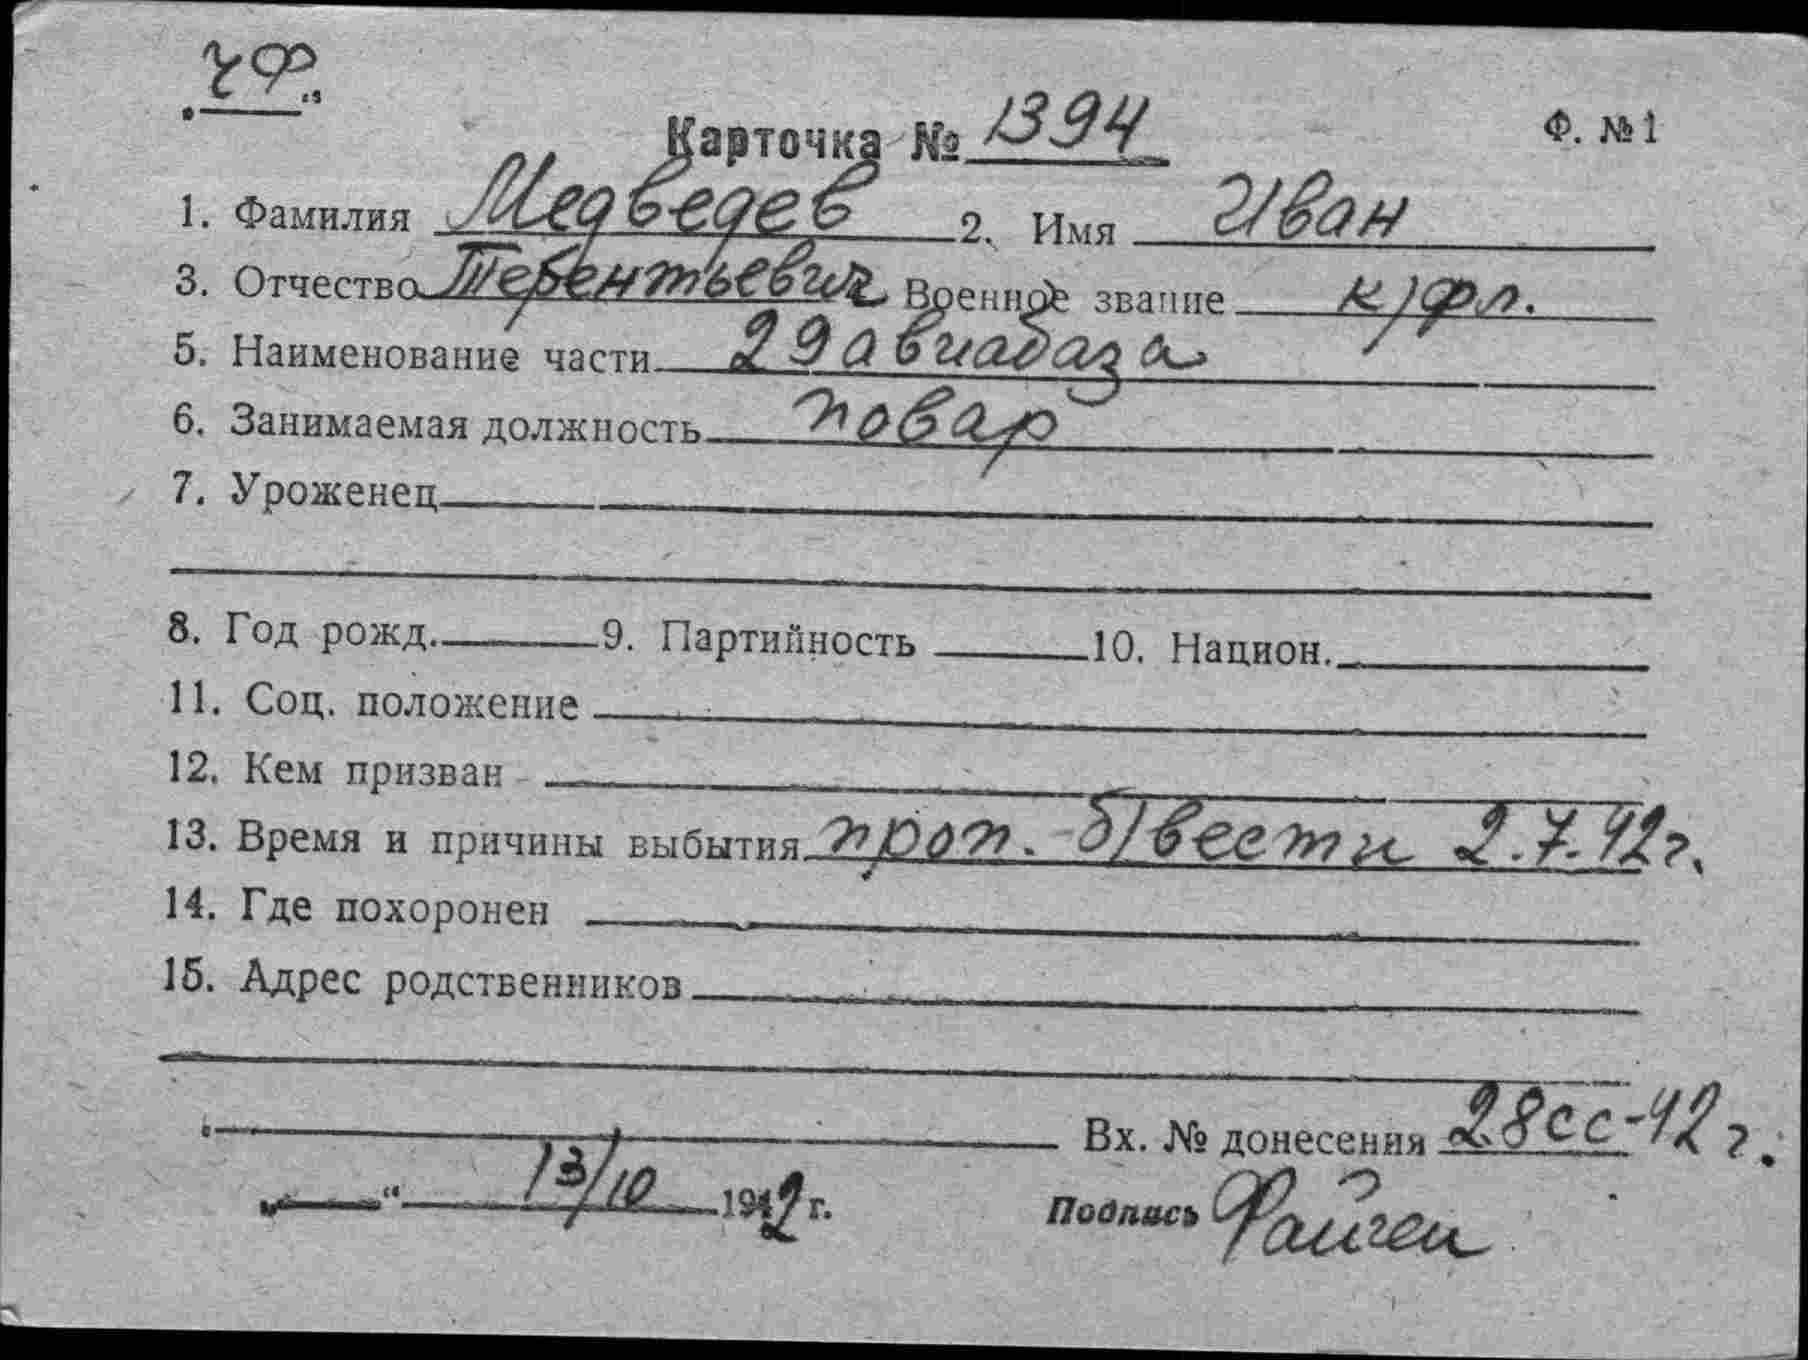 ЧФ.
Карточка № 1394 Ф. №1
1. Фамилия Медведев 2. Имя Иван
3. Отчество Терентьевич Военное звание к/фл.
5. Наименование части 29 авиабаза
6. Занимаемая должность повар
7. Уроженец
8. Год рожд. 9. Партийность 10. Национ.
11. Соц. положение
12. Кем призван
13. Время и причины выбытия проп. б/вести 2.7.42г.
14. Где похоронен
15. Адрес родственников
Вх. № донесения 28сс-42г.
„ “ 13/10 1942 г. Подпись